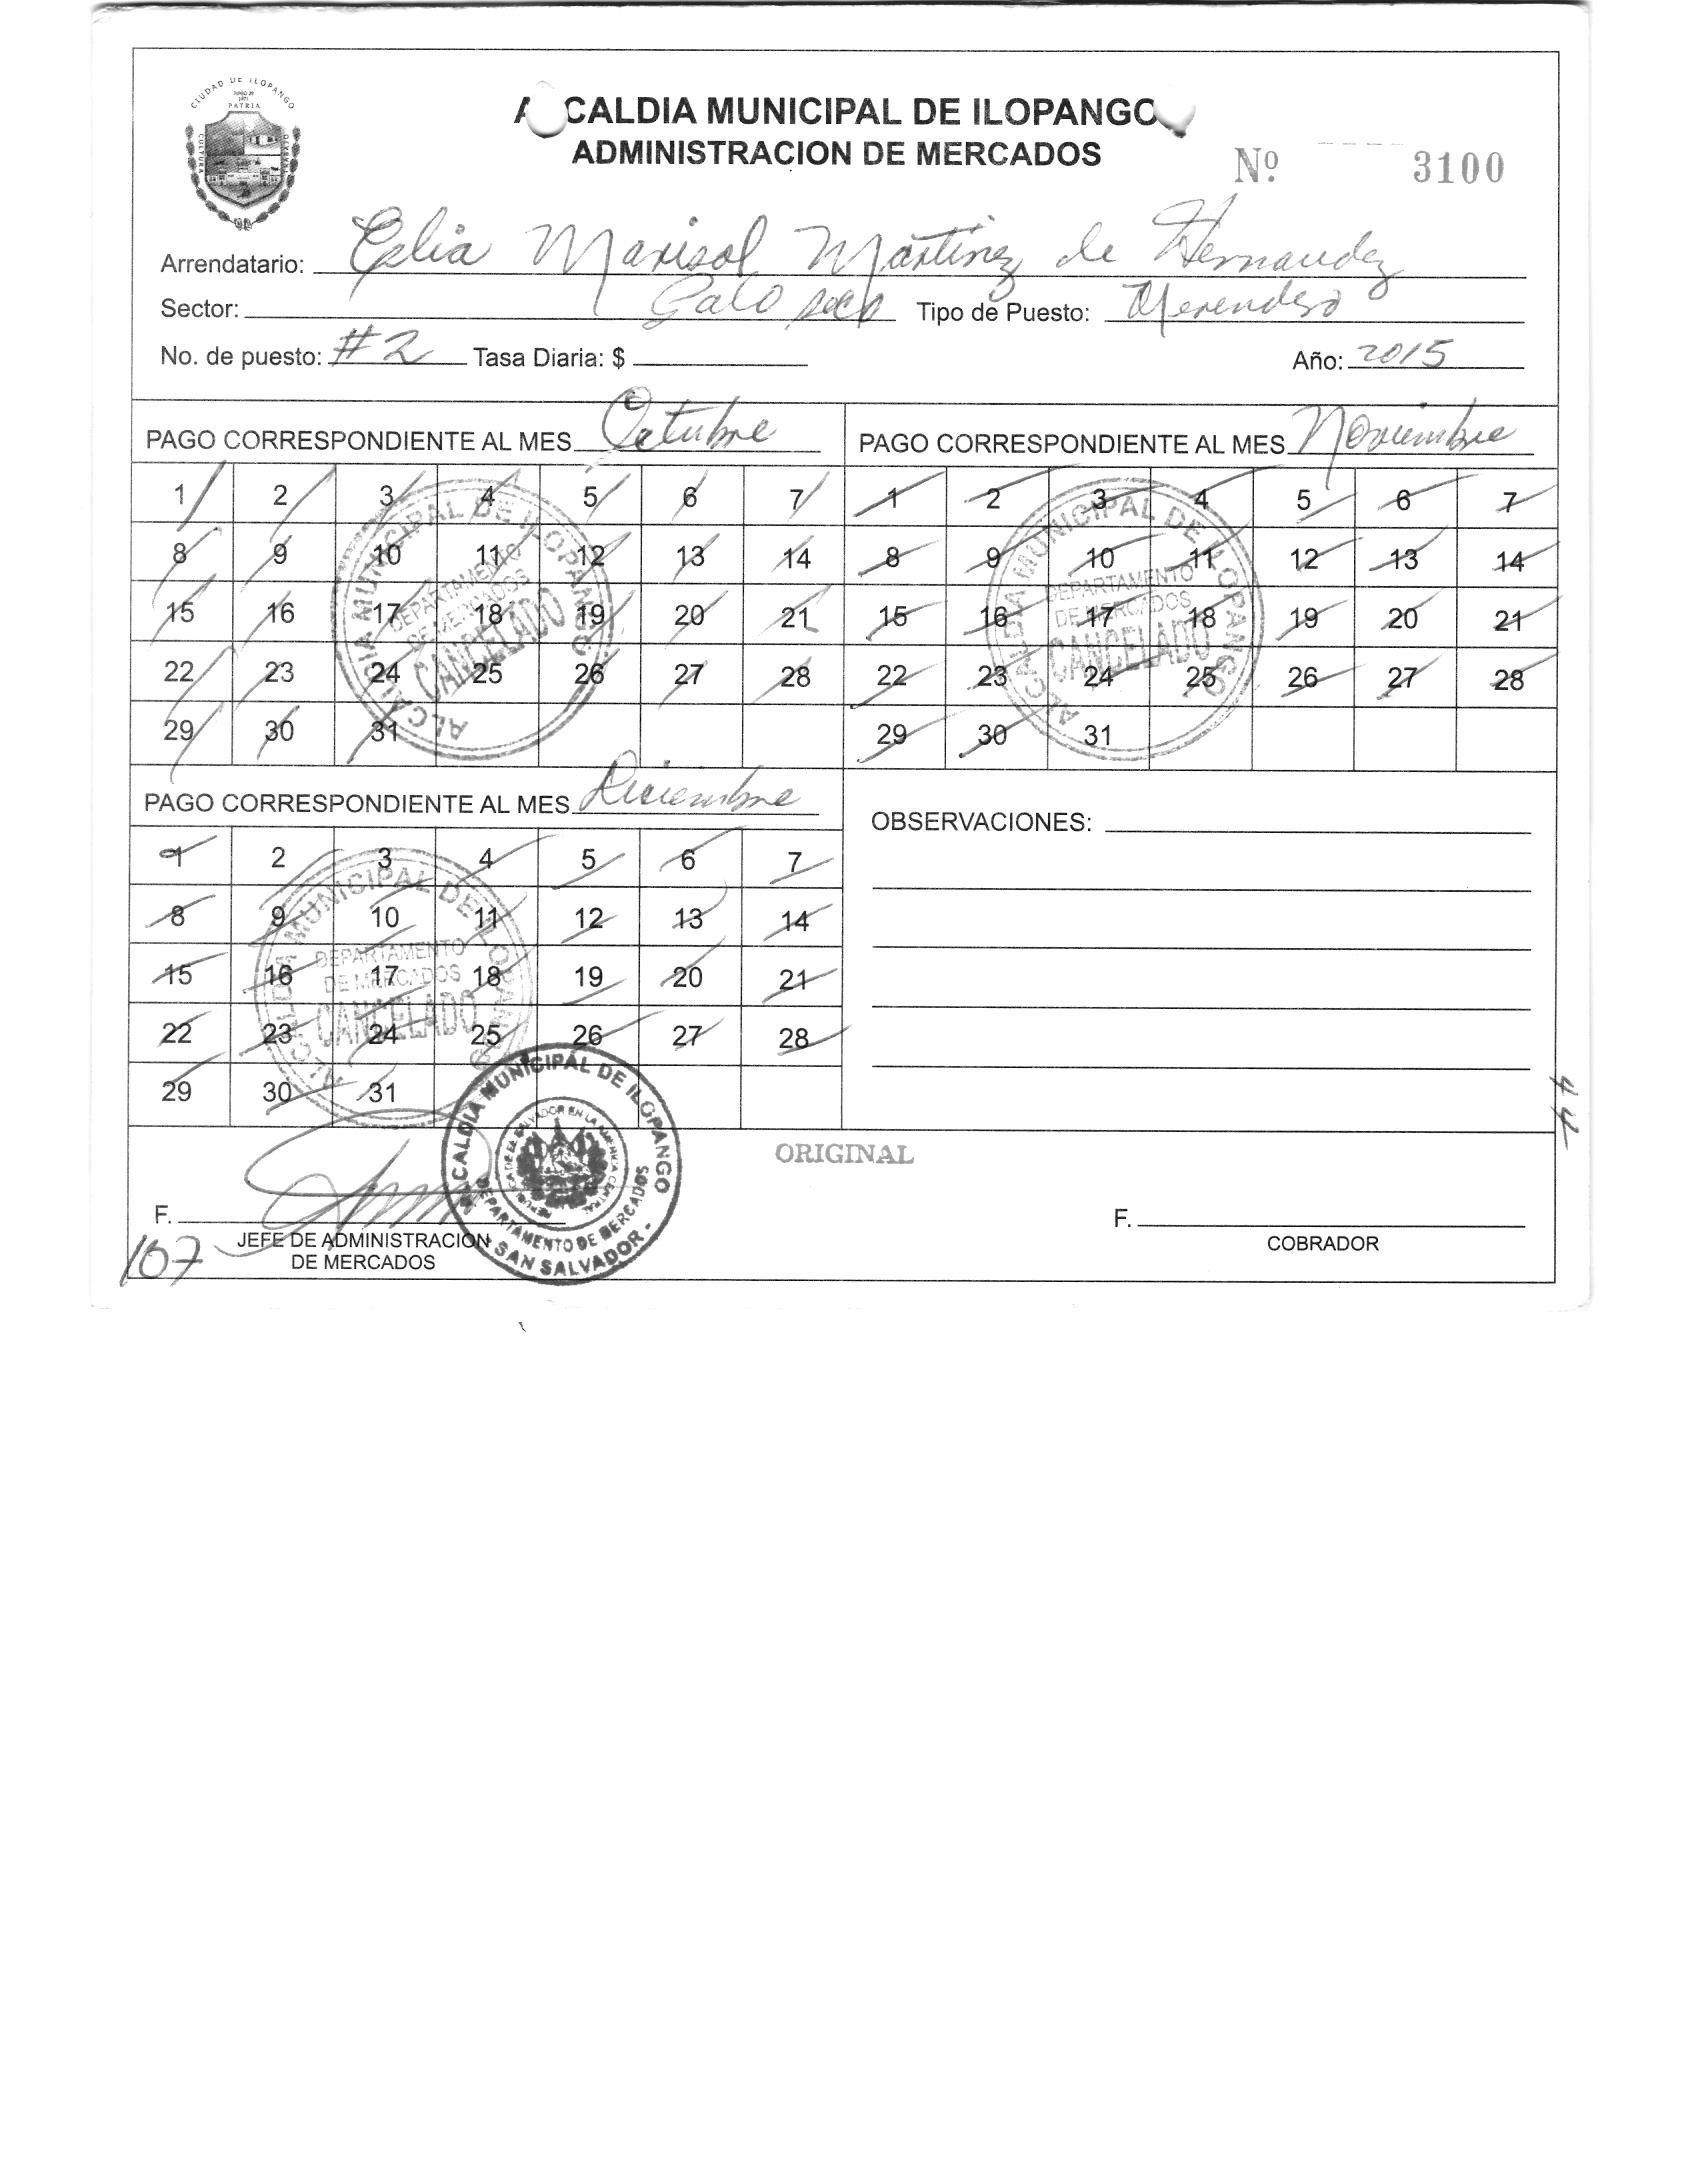 CIUDAD DE ILOPANGO
PATRIA
CULTURA
ALCALDIA MUNICIPAL DE ILOPANGO
ADMINISTRACION DE MERCADOS
Nº 3100
Arrendatario: Celia Marisol Martinez de Hernandez
Sector: Palo seco Tipo de Puesto: Merendero
No. de puesto: #2 Tasa Diaria: $ Año: 2015
PAGO CORRESPONDIENTE AL MES Octubre
1 2 3 4 5 6 7
8 9 10 11 12 13 14
15 16 17 18 19 20 21
22 23 24 25 26 27 28
29 30 31
ALCALDIA MUNICIPAL DE ILOPANGO
DEPARTAMENTO
DE MERCADOS
CANCELADO
PAGO CORRESPONDIENTE AL MES Noviembre
1 2 3 4 5 6 7
8 9 10 11 12 13 14
15 16 17 18 19 20 21
22 23 24 25 26 27 28
29 30 31
ALCALDIA MUNICIPAL DE ILOPANGO
DEPARTAMENTO
DE MERCADOS
CANCELADO
PAGO CORRESPONDIENTE AL MES Diciembre
1 2 3 4 5 6 7
8 9 10 11 12 13 14
15 16 17 18 19 20 21
22 23 24 25 26 27 28
29 30 31
ALCALDIA MUNICIPAL DE ILOPANGO
DEPARTAMENTO
DE MERCADOS
CANCELADO
OBSERVACIONES:
44
ORIGINAL
F.
JEFE DE ADMINISTRACION
DE MERCADOS
107
ALCALDIA MUNICIPAL DE ILOPANGO
REPUBLICA DE EL SALVADOR EN LA AMERICA CENTRAL
DEPARTAMENTO DE MERCADOS
- SAN SALVADOR -
F.
COBRADOR